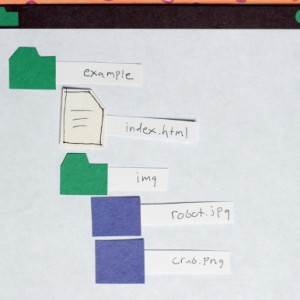 example
index.html
img
robot.jpg
crab.png